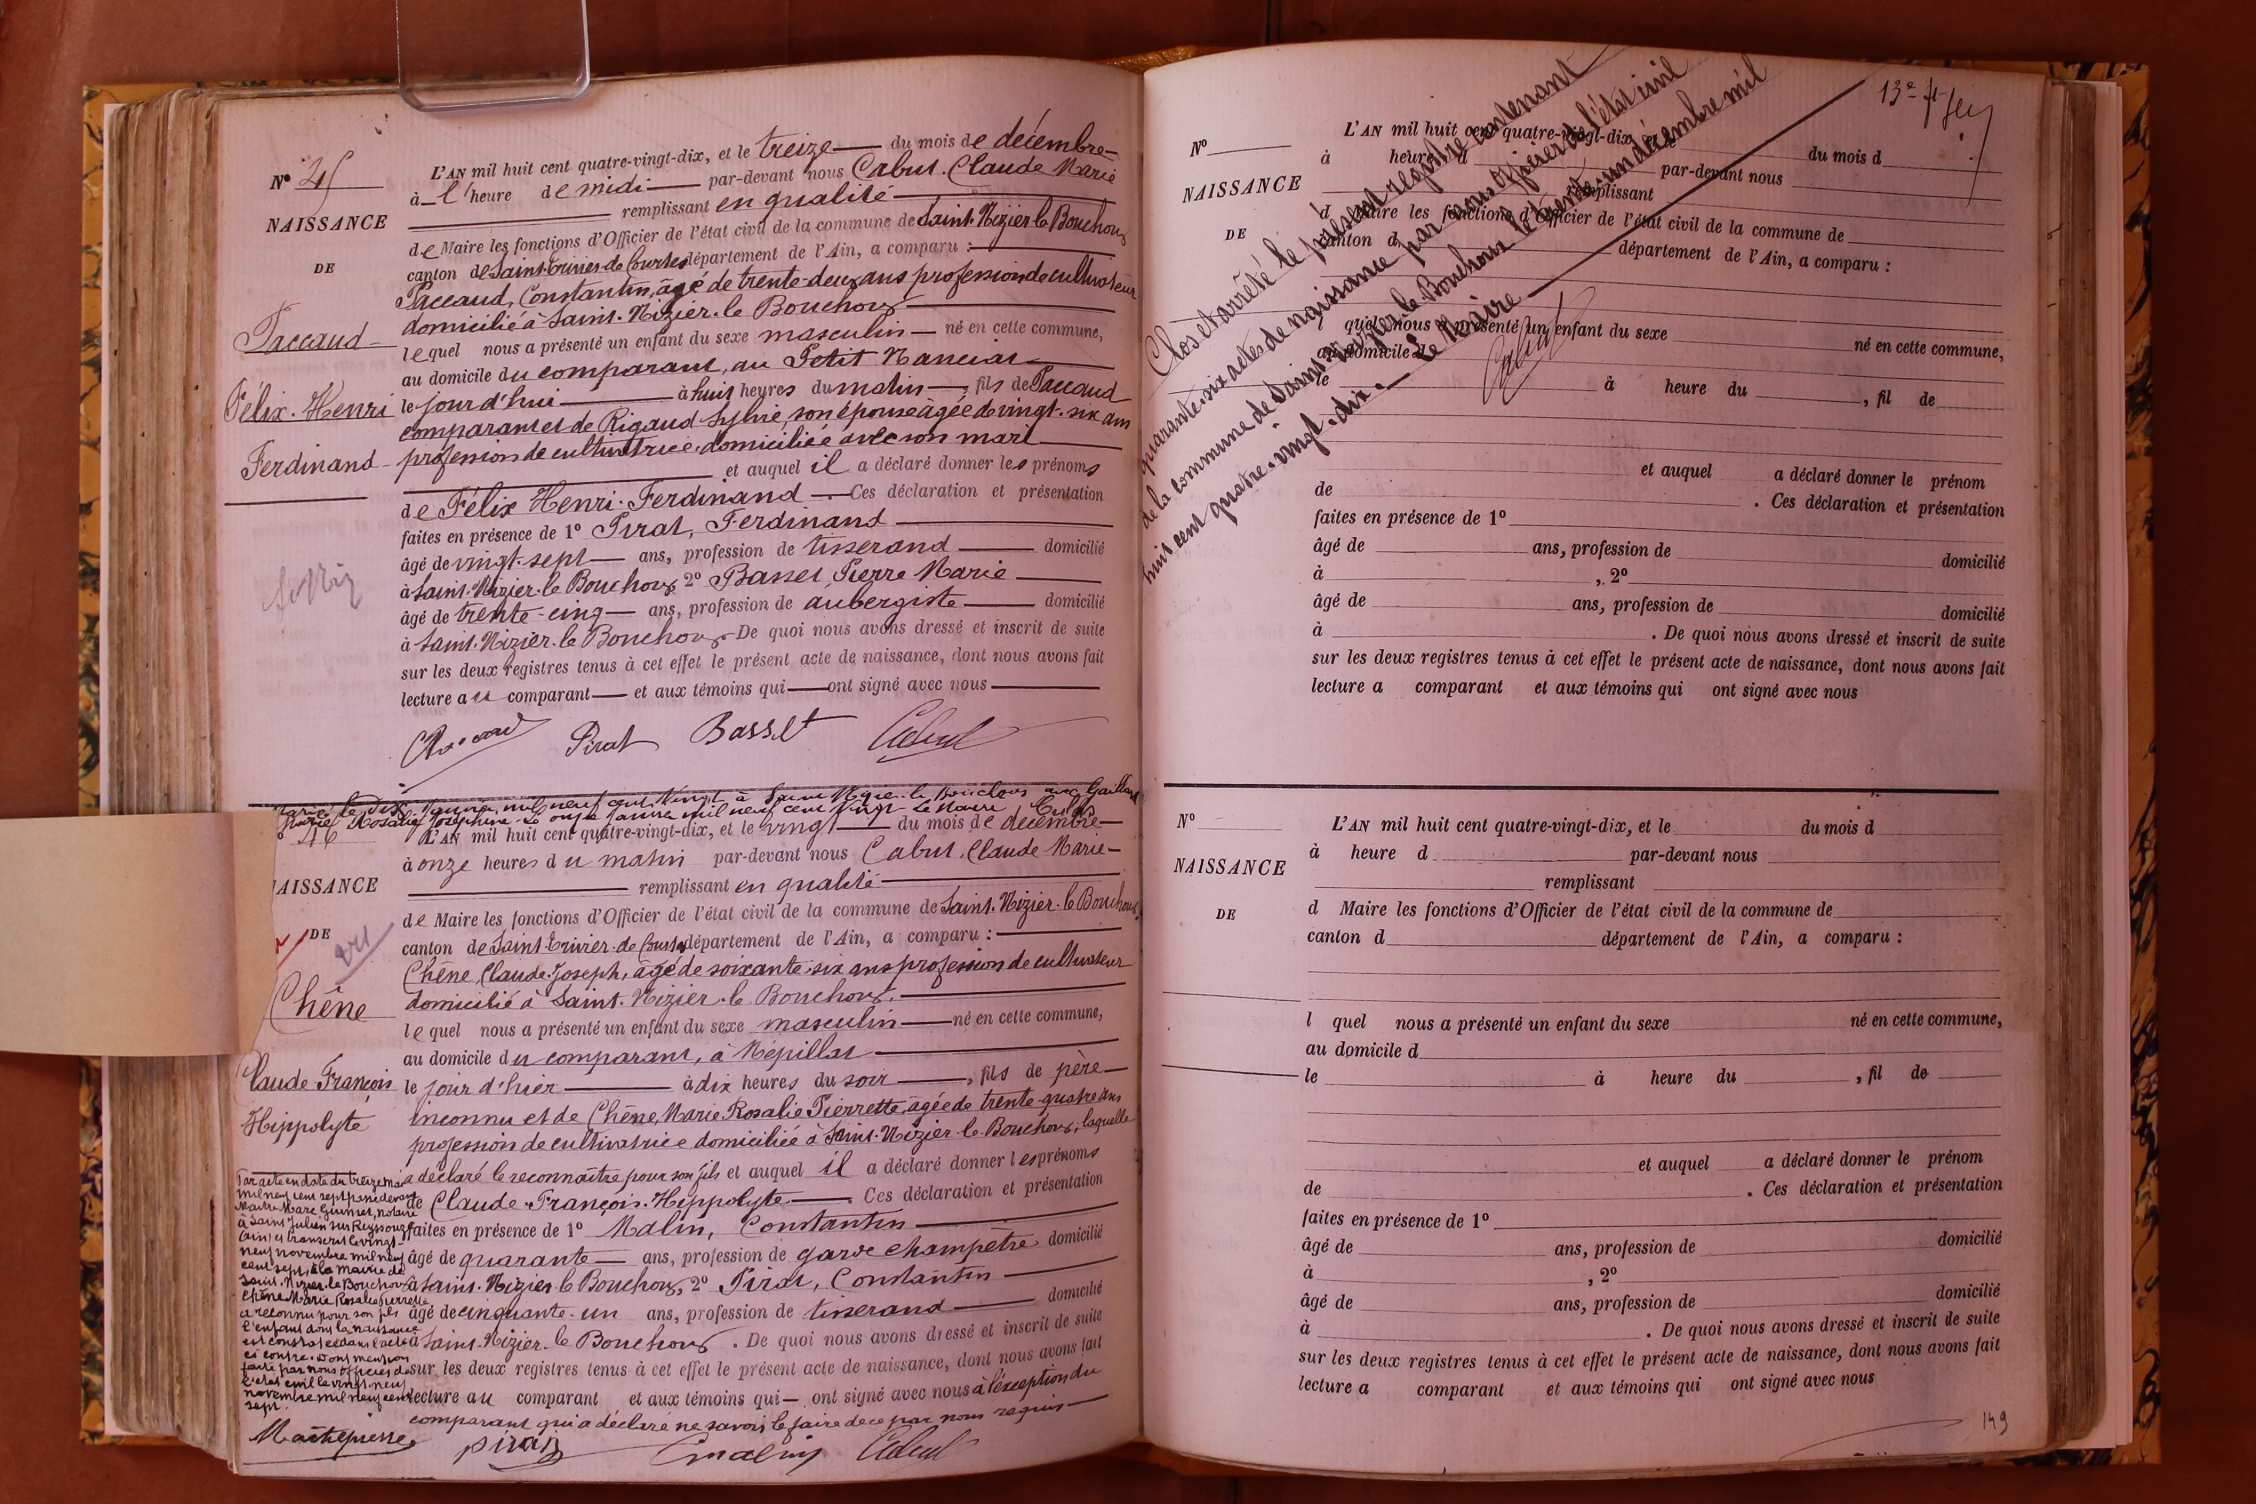 N° 45
NAISSANCE
DE
Paccaud
Félix-Henri
Ferdinand
L'AN mil huit cent quatre-vingt-dix, et le treize du mois de décembre
à l'heure de midi par-devant nous Cabut, Claude Marie
remplissant en qualité
de Maire les fonctions d'Officier de l'état civil de la commune de Saint-Nizier-le Bouchoux
canton de Saint-Trivier-de Courtes département de l'Ain, a comparu :
Paccaud, Constantin, âgé de trente-deux ans profession de cultivateur
domicilié à Saint-Nizier-le Bouchoux
lequel nous a présenté un enfant du sexe masculin né en cette commune,
au domicile du comparant, au Petit Nanciat
le jour d'hui à huit heures du matin, fils de Paccaud
comparant et de Rigaud Sylvie, son épouse âgée de vingt-six ans
profession de cultivatrice, domiciliée avec son mari
et auquel il a déclaré donner les prénoms
de Félix Henri-Ferdinand. Ces déclaration et présentation
faites en présence de 1° Pirat, Ferdinand
âgé de vingt-sept ans, profession de tisserand domicilié
à Saint-Nizier-le Bouchoux, 2° Basset, Pierre Marie
âgé de trente-cinq ans, profession de aubergiste domicilié
à Saint-Nizier-le Bouchoux. De quoi nous avons dressé et inscrit de suite
sur les deux registres tenus à cet effet le présent acte de naissance, dont nous avons fait
lecture au comparant et aux témoins qui ont signé avec nous
Pirat Basset Cabut
Marié le dix Janvier mil neuf cent vingt à Saint Nizier-le Bouchoux avec Gaillard
Marie Rosalie Joséphine. Le onze Janvier mil neuf cent vingt Le Maire
46
NAISSANCE
DE
vu
Chêne
Claude François
Hippolyte
L'AN mil huit cent quatre-vingt-dix, et le vingt du mois de décembre
à onze heures du matin par-devant nous Cabut, Claude Marie
remplissant en qualité
de Maire les fonctions d'Officier de l'état civil de la commune de Saint-Nizier-le Bouchoux
canton de Saint-Trivier-de Courtes département de l'Ain, a comparu :
Chêne, Claude Joseph, âgé de soixante-six ans profession de cultivateur
domicilié à Saint-Nizier-le Bouchoux,
lequel nous a présenté un enfant du sexe masculin né en cette commune,
au domicile du comparant, à Népillat
le jour d'hier à dix heures du soir, fils de père
inconnu et de Chêne, Marie Rosalie Pierrette, âgée de trente-quatre ans
profession de cultivatrice domiciliée à Saint-Nizier-le Bouchoux, laquelle
a déclaré le reconnaître pour son fils et auquel il a déclaré donner les prénoms
de Claude-François-Hippolyte. Ces déclaration et présentation
faites en présence de 1° Malin, Constantin
âgé de quarante ans, profession de garde champêtre domicilié
à Saint-Nizier-le Bouchoux, 2° Pirat, Constantin
âgé de cinquante-un ans, profession de tisserand domicilié
à Saint-Nizier-le Bouchoux. De quoi nous avons dressé et inscrit de suite
sur les deux registres tenus à cet effet le présent acte de naissance, dont nous avons fait
lecture au comparant et aux témoins qui ont signé avec nous à l'exception du
comparant qui a déclaré ne savoir le faire de ce par nous requis
Par acte en date du treize mai
mil neuf cent sept passé devant
Maître Marc notaire
à Saint Julien sur Reyssouze
(Ain) et transcrit le vingt-
neuf novembre mil neuf
cent sept, à la mairie de
Saint-Nizier-le Bouchoux
Chêne Marie Rosalie Pierrette
a reconnu pour son fils
l'enfant dont la naissance
est constatée dans l'acte
ci contre. Dont mention
faite par nous officier de
l'état civil le vingt-neuf
novembre mil neuf cent
sept.
Pirat Malin Cabut
13e
N°
NAISSANCE
DE
L'AN mil huit cent quatre-vingt-dix, et le du mois d
à heure d par-devant nous
remplissant
d Maire les fonctions d'Officier de l'état civil de la commune de
canton d département de l'Ain, a comparu :
l quel nous a présenté un enfant du sexe né en cette commune,
au domicile d
le à heure du , fil de
et auquel a déclaré donner le prénom
de . Ces déclaration et présentation
faites en présence de 1°
âgé de ans, profession de domicilié
à , 2°
âgé de ans, profession de domicilié
à . De quoi nous avons dressé et inscrit de suite
sur les deux registres tenus à cet effet le présent acte de naissance, dont nous avons fait
lecture a comparant et aux témoins qui ont signé avec nous
Clos et arrêté le présent registre contenant
quarante-six actes de naissance par nous officier de l'état civil
de la commune de Saint-Nizier-le-Bouchoux le trente-un décembre mil
huit cent quatre-vingt-dix. Le Maire
Cabut
N°
NAISSANCE
DE
L'AN mil huit cent quatre-vingt-dix, et le du mois d
à heure d par-devant nous
remplissant
d Maire les fonctions d'Officier de l'état civil de la commune de
canton d département de l'Ain, a comparu :
l quel nous a présenté un enfant du sexe né en cette commune,
au domicile d
le à heure du , fil de
et auquel a déclaré donner le prénom
de . Ces déclaration et présentation
faites en présence de 1°
âgé de ans, profession de domicilié
à , 2°
âgé de ans, profession de domicilié
à . De quoi nous avons dressé et inscrit de suite
sur les deux registres tenus à cet effet le présent acte de naissance, dont nous avons fait
lecture a comparant et aux témoins qui ont signé avec nous
149